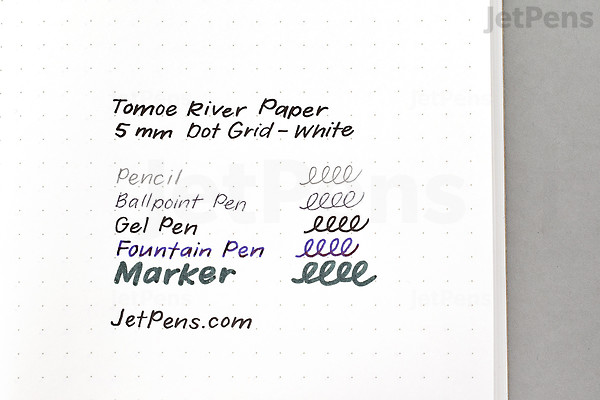 JetPens
Tomoe River Paper
5 mm Dot Grid - White
Pencil
Ballpoint Pen
Gel Pen
Fountain Pen
Marker
JetPens.com